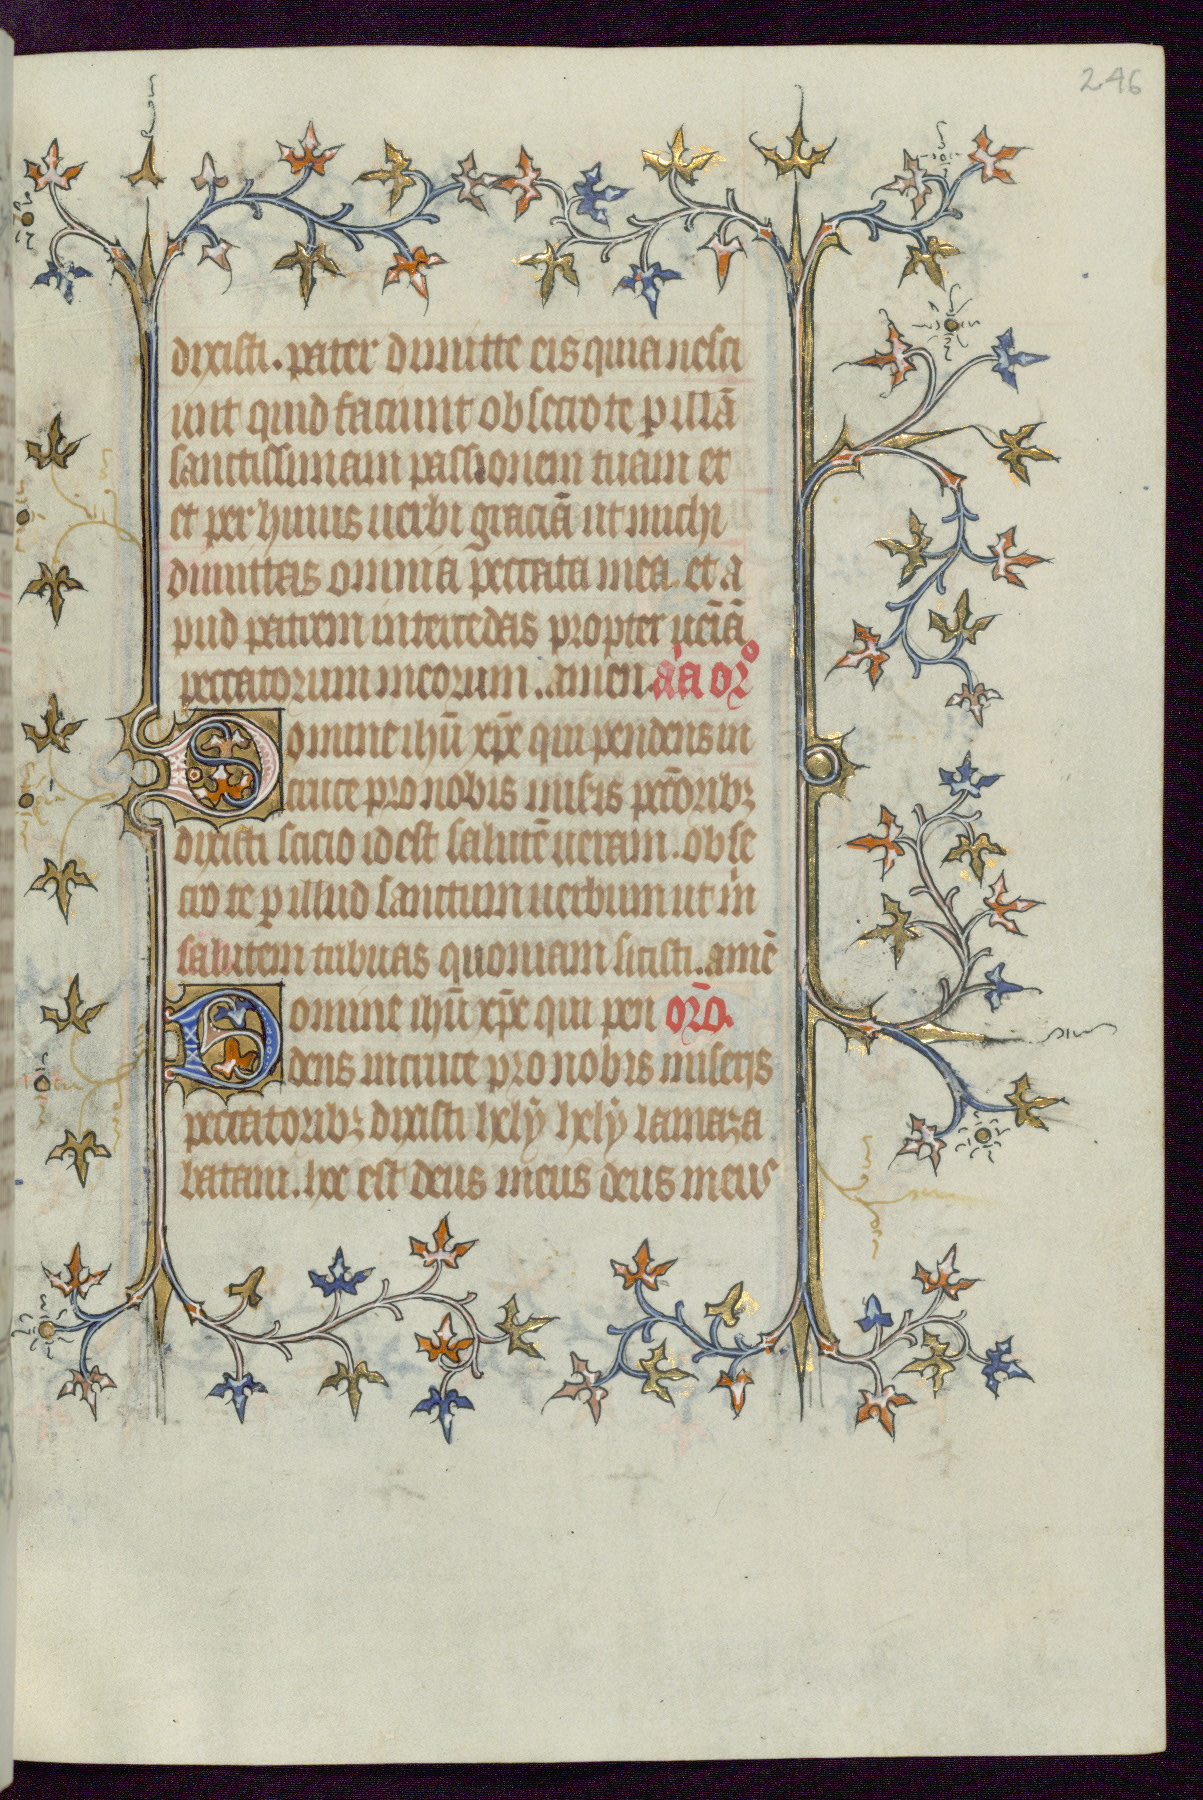 246
dixisti. pater dimitte eis quia nesci
unt quid faciunt obsecro te p illā
sanctissimam passionem tuam et
et per huius uerbi graciā ut michi
dimittas omnia peccata mea. et a
pud patrem intercedas propter ueiā
peccatorum meorum. amen. a͛a or͛o
Domine ihū xp̄e qui pendens in
cruce pro nobis misis pccōribꝫ
dixisti scicio id est salutē ueram. obse
cro te p illud sanctum uerbum ut in
salutem tribuas quoniam sitisti. amē
Domine ihū xp̄e qui pen orō.
dens in cruce pro nobis miseris
peccatoribꝫ dixisti hely hely lamaza
batani. hoc est deus meus deus meus